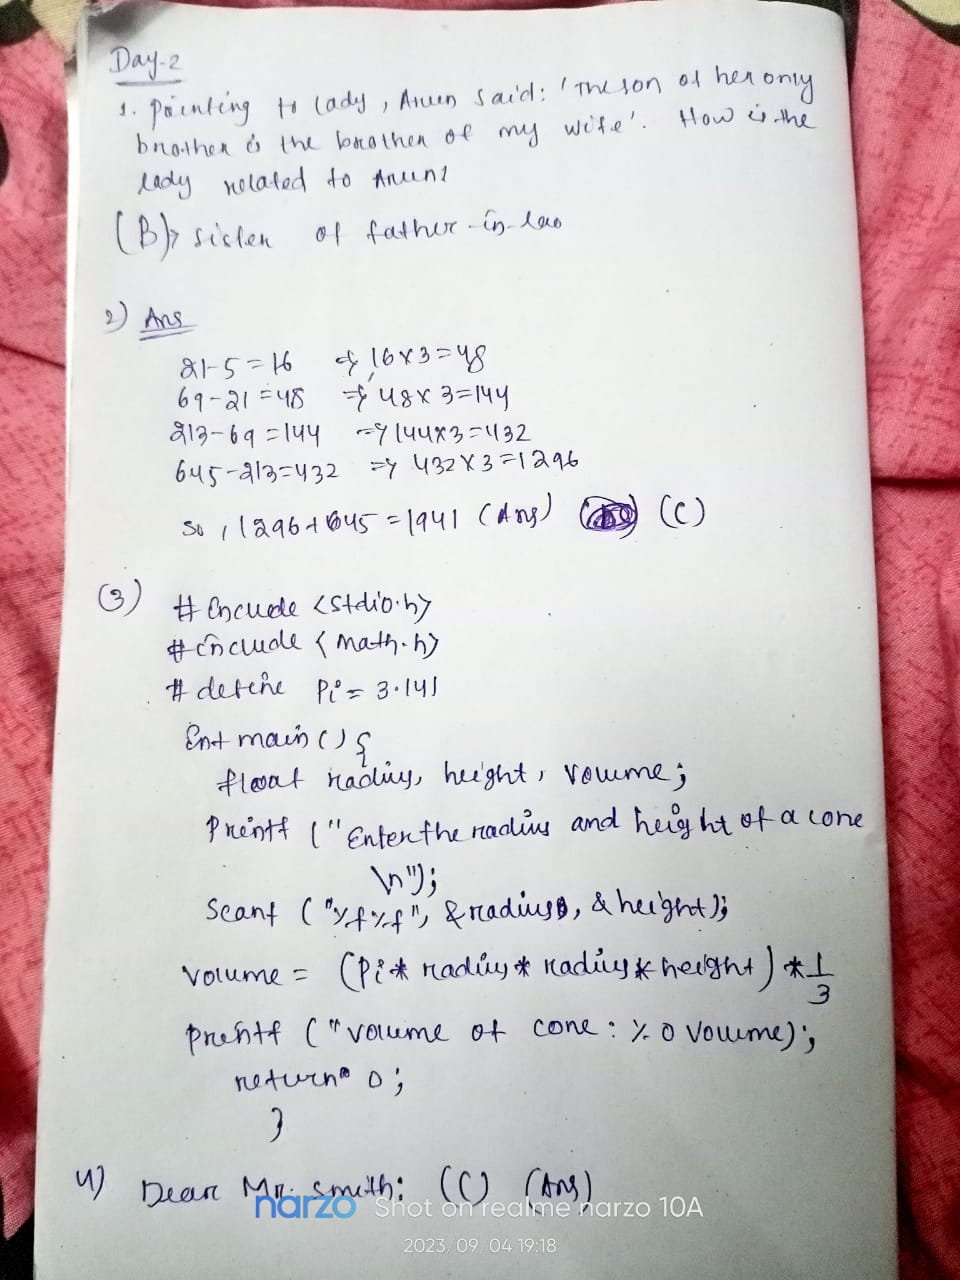 Day-2
1. Pointing to lady, Arun said: 'The son of her only
brother is the brother of my wife'. How is the
lady related to Arun?
(B) → sister of father-in-law
2) Ans
21-5=16 => 16×3=48
69-21=48 => 48×3=144
213-69=144 => 144×3=432
645-213=432 => 432×3=1296
so, 1296+645=1941 (Ans) (C)
(3) # include <stdio.h>
# include <math.h>
# define Pi = 3.141
int main() {
float radius, height, volume;
Printf ("Enter the radius and height of a cone
\n");
Scanf ("%f%f", &radius, &height);
volume = (Pi* radius* radius* height) * 1/3
printf ("volume of cone: %0 volume);
return 0;
}
4) Dear Mr. smith: (C) (Ans)
narzo Shot on realme narzo 10A
2023/09/04 19:18